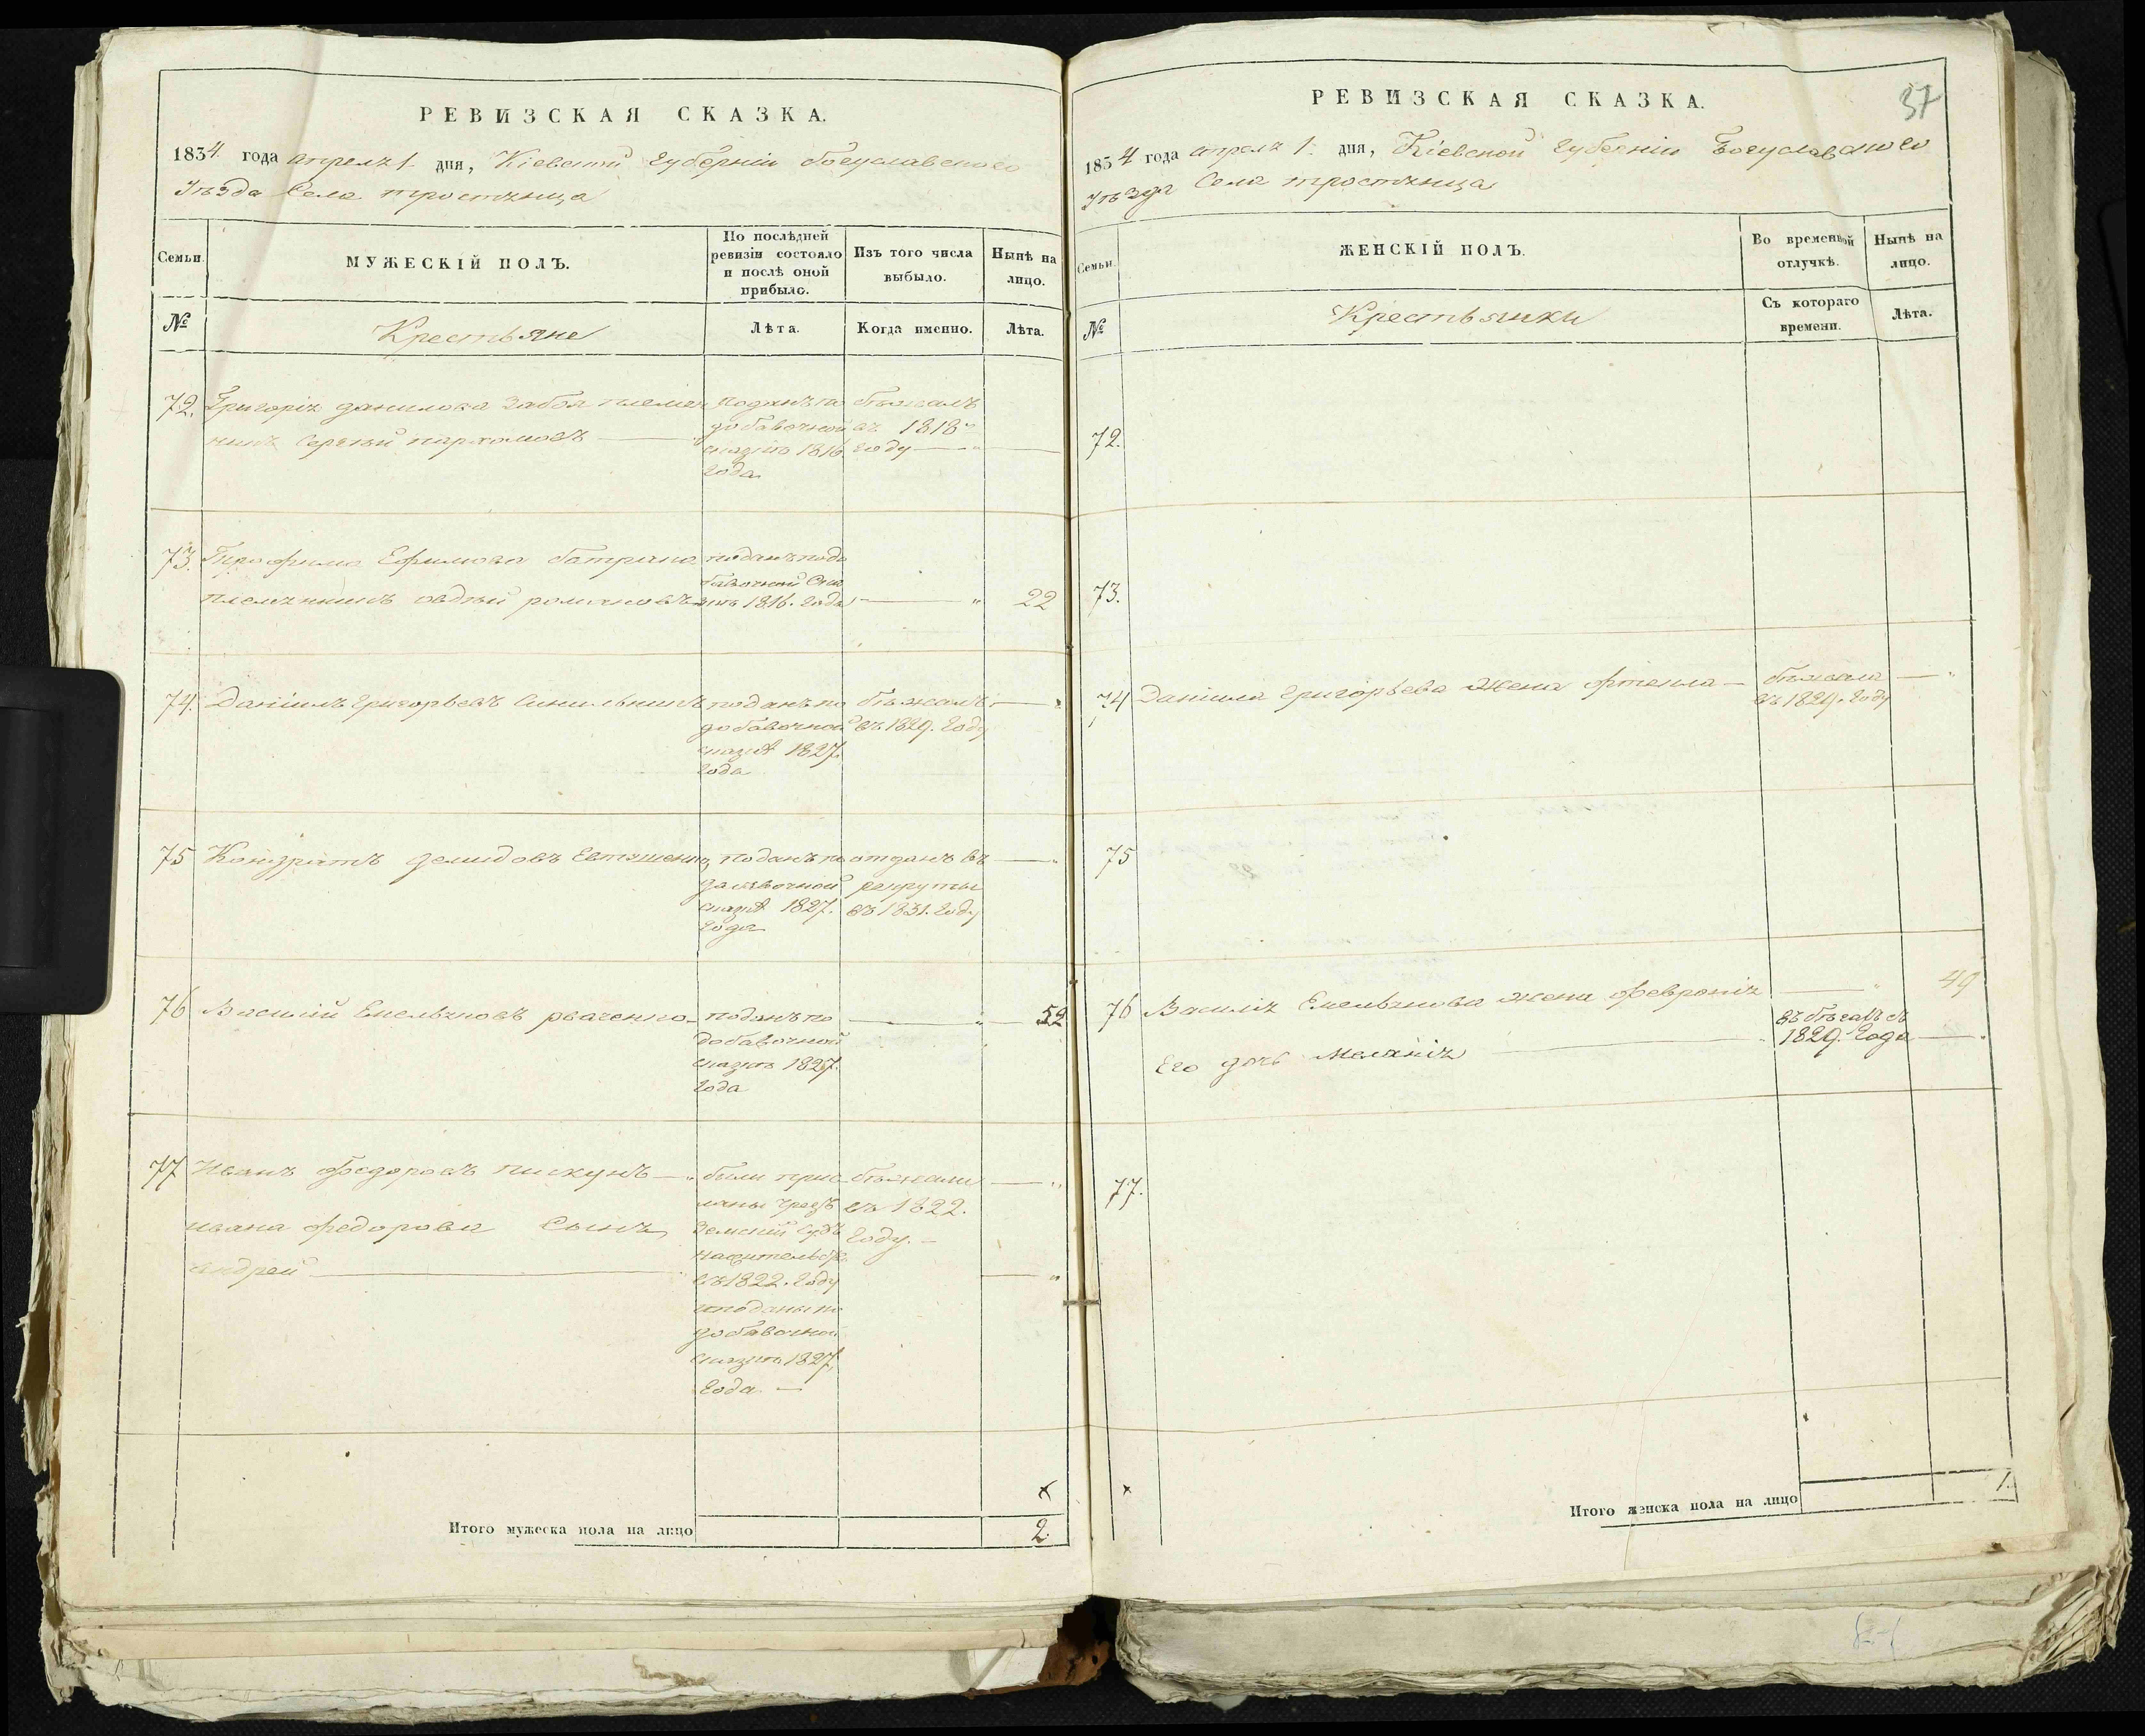 РЕВИЗСКАЯ СКАЗКА.
1834 года апреля 1 дня, Кіевской губерніи богуславского
уѣзда Села тростянца
Семьи.
МУЖЕСКІЙ ПОЛЪ.
По послѣдней ревизіи состояло и послѣ оной прибыло.
Изъ того числа выбыло.
Нынѣ на лицо.
№
Крестьяне
Лѣта.
Когда именно.
Лѣта.
72. Григорія данилова Забоя племян поданъ по бѣжалъ
никъ Сергѣй пархомовъ добавочной въ 1818
сказкѣ 1816 году
года
73. Трофима Ефимова батрака поданъ подо
бавочной Ска
племянникъ овдѣй романовъ зкѣ 1816. года 22
74. Даніилъ григорьевъ Синильникъ поданъ по бѣжалъ
добавочной въ 1829. году
сказкѣ 1827.
года
75 Кондратъ демидовъ Евтушенко поданъ по отданъ въ
добавочной рекруты
сказкѣ 1827. въ 1831. году
года
76 Василій Емельяновъ рваченко поданъ по 52
добавочной
сказкѣ 1827.
года
77 Иванъ федоровъ пискунъ были прис бѣжали
ланы чрезъ въ 1822.
ивана федорова Сынъ Земскій судъ году.
андрей
въ 1822. году
и поданы по
добавочной
сказкѣ 1827.
года
Итого мужеска пола на лицо 2.
37
РЕВИЗСКАЯ СКАЗКА.
1834 года апреля 1. дня, Кіевской губерніи Богуславского
уѣзда Села тростянца
Семьи.
ЖЕНСКІЙ ПОЛЪ.
Во временной отлучкѣ.
Нынѣ на лицо.
№
Крестьянки
Съ котораго времени.
Лѣта.
72.
73.
74 Даніила григорьева жена бѣжала
въ 1829. году
75
76 Василія Емельянова жена Февронія 49
въ бѣгахъ съ
Его дочь Меланія 1829. года
77.
Итого женска пола на лицо 1.